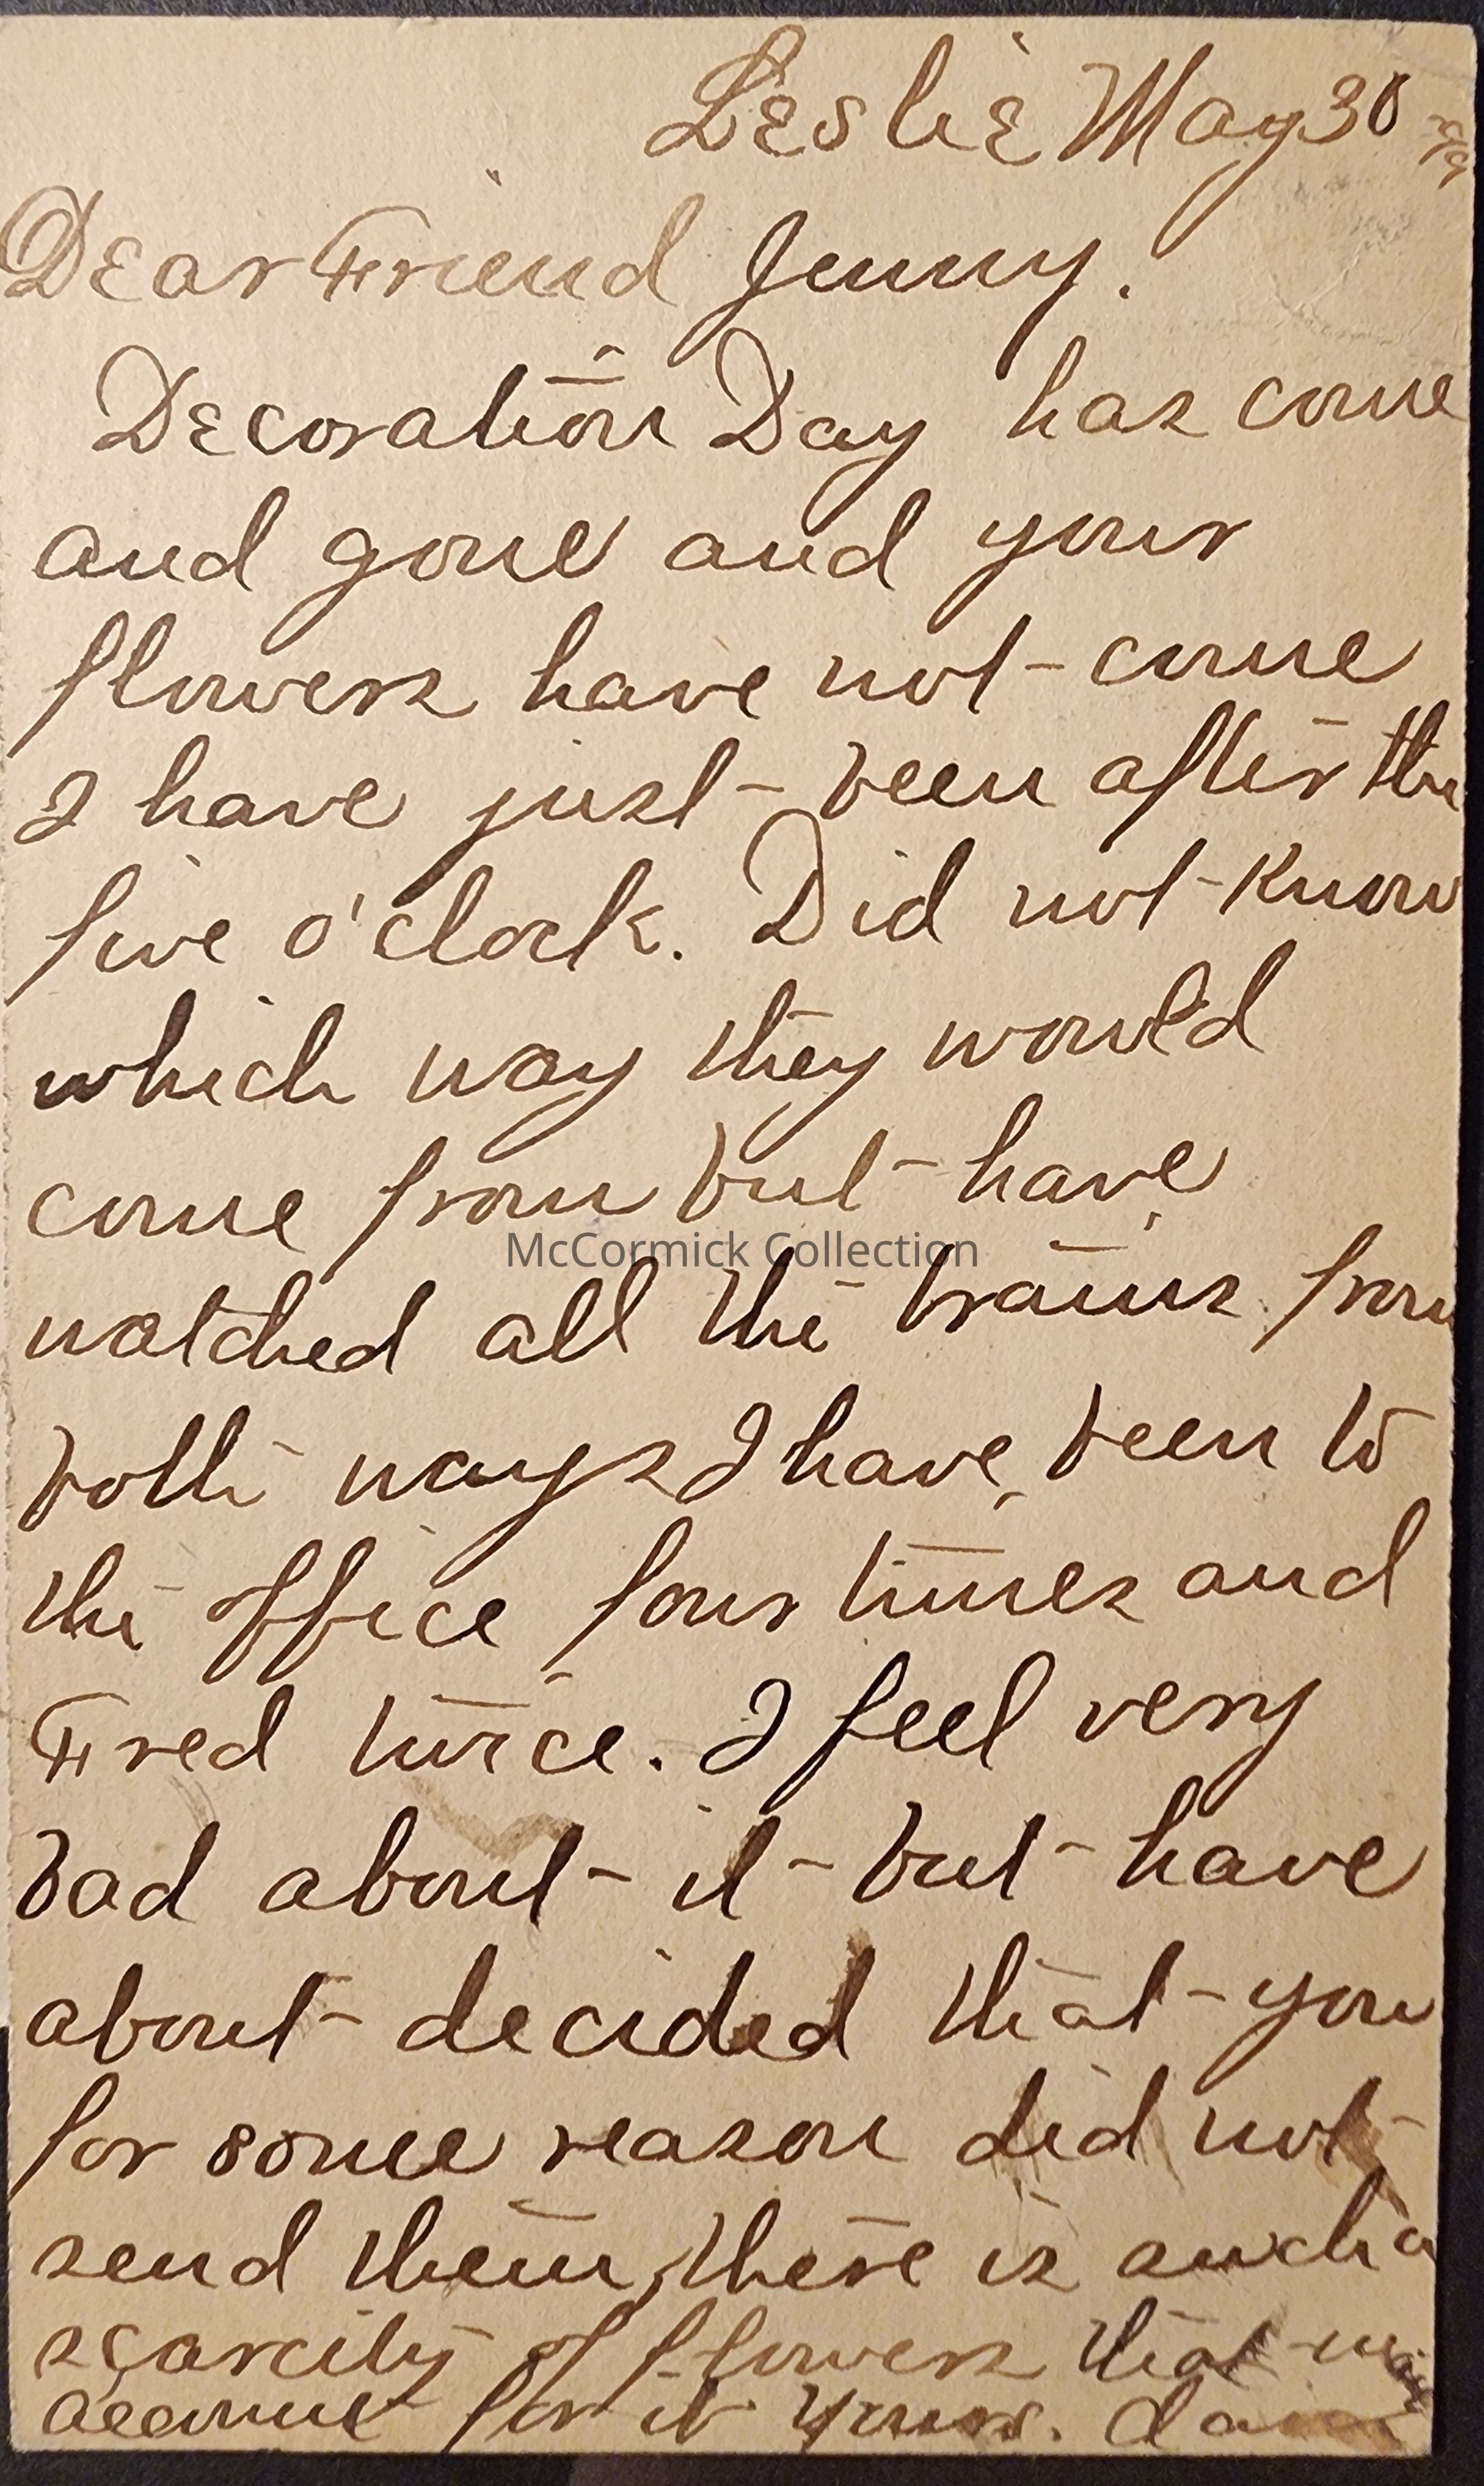 Leslie May 30
Dear Friend Jenny.
Decoration Day has come
and gone and your
flowers have not come
I have just been after the
five o'clock. Did not know
which way they would
come from but have
McCormick Collection
watched all the trains from
both ways I have been to
the office four times and
Fred twice. I feel very
bad about it but have
about decided that you
for some reason did not
send them, there is such a
scarcity of flowers that
account for it Yours.